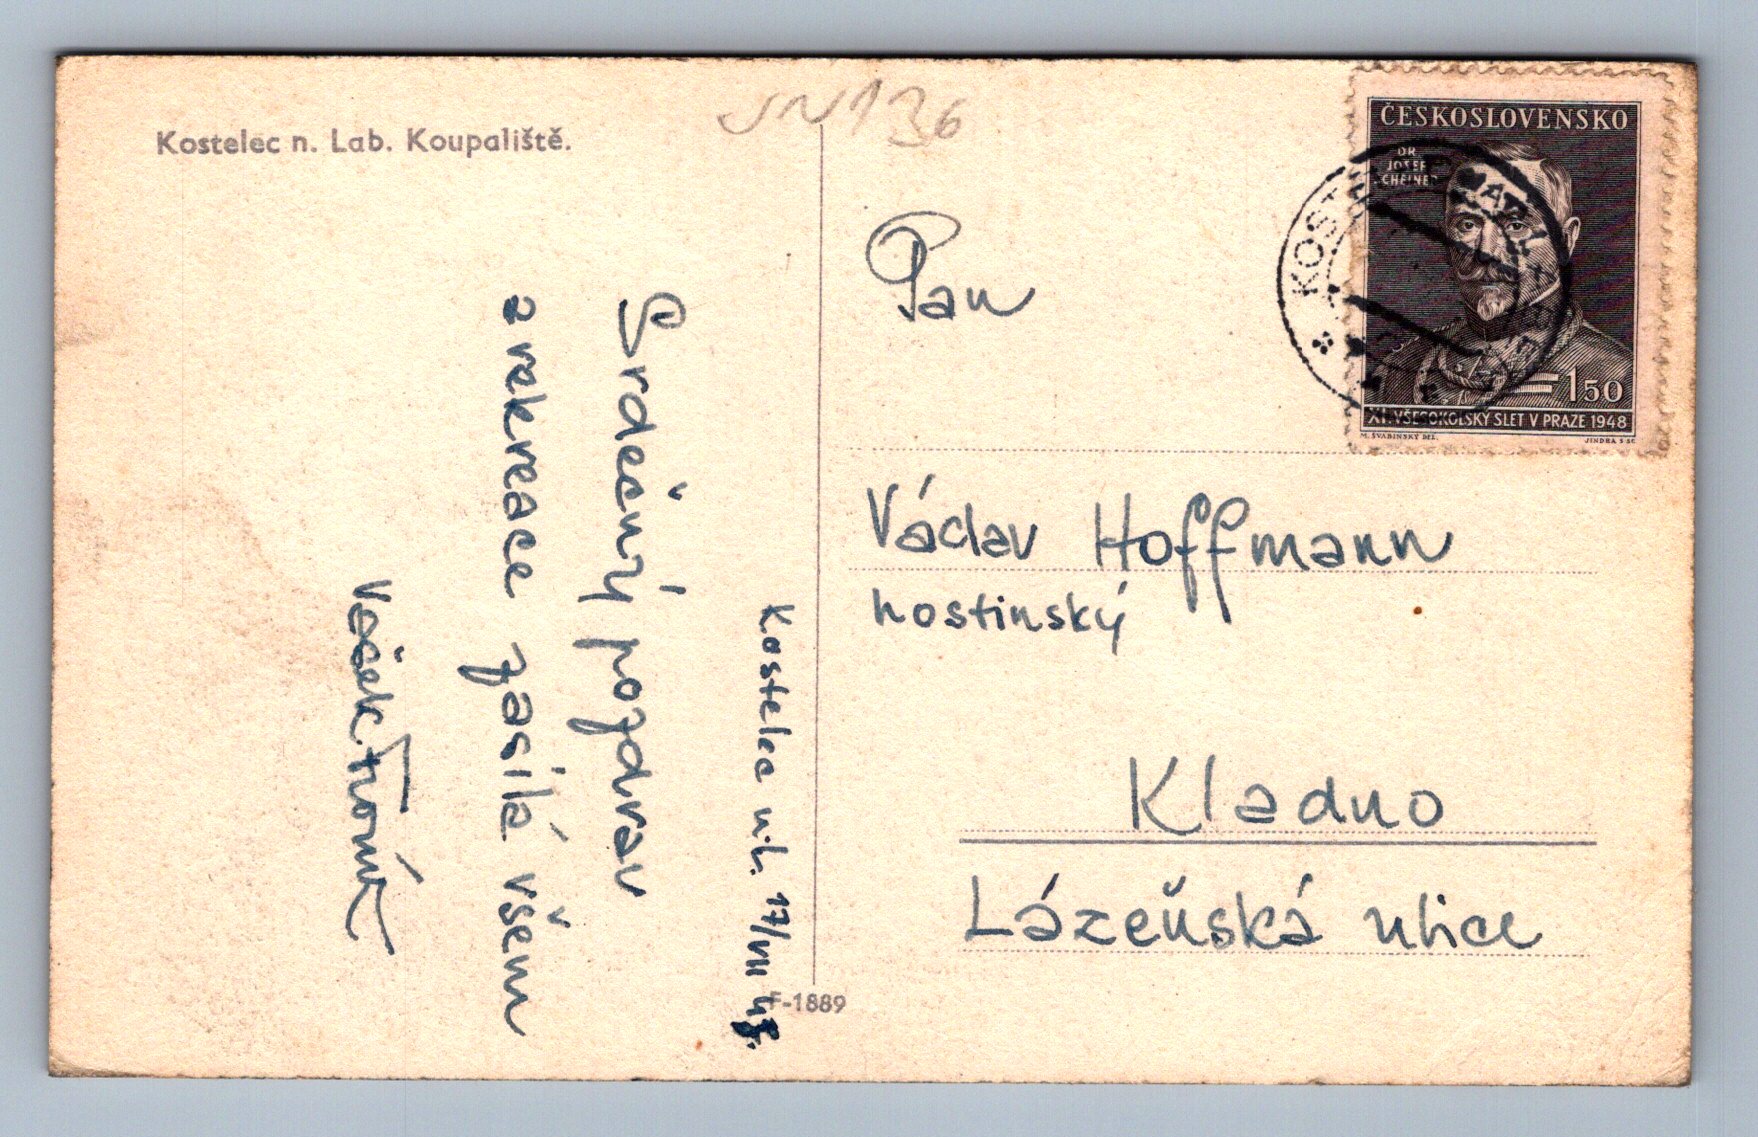 Kostelec n. Lab. Koupaliště.
JN136
Kostelec n.L. 17/VII 48.
Srdečný pozdrav
z rekreace zasílá všem
Vašek
F-1889
ČESKOSLOVENSKO
DR.
JOSEF
SCHEINER
150
XI. VŠESOKOLSKÝ SLET V PRAZE 1948
M. ŠVABINSKÝ DEL.
JINDRA SC
KOSTELEC NAD LAB.
Pan
Václav Hoffmann
hostinský
Kladno
Lázeňská ulice